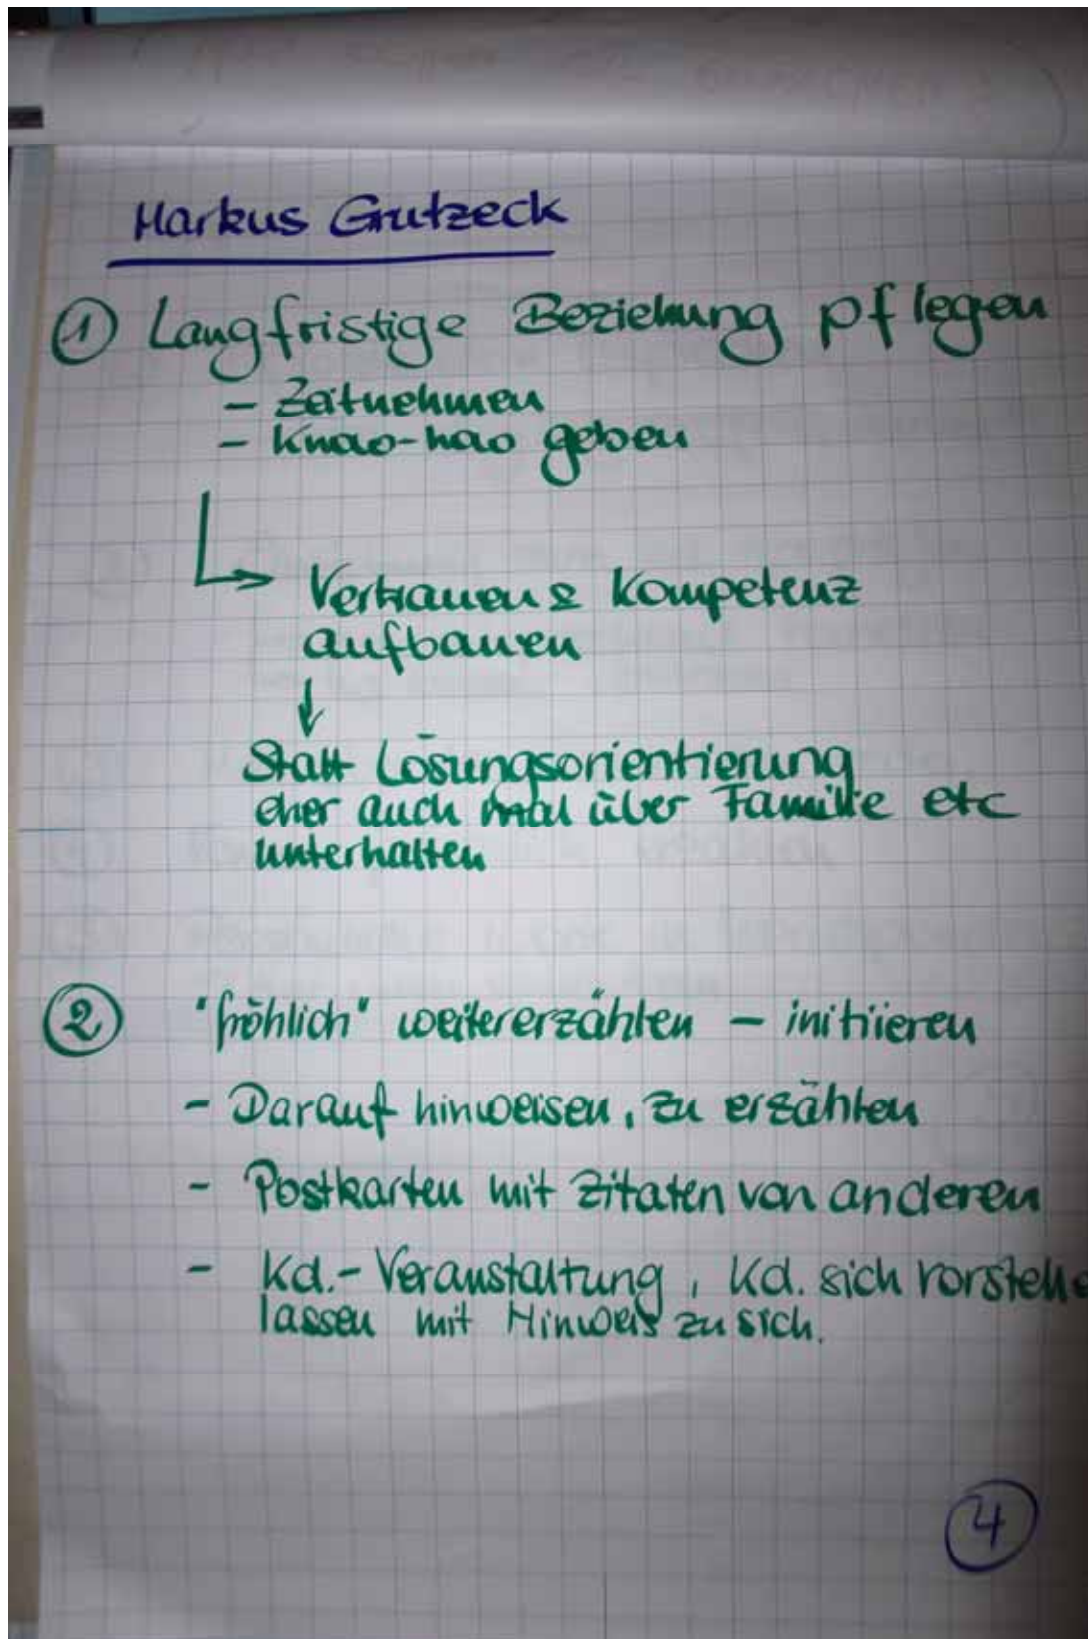 Markus Grutzeck
① Langfristige Beziehung pflegen
- Zeitnehmen
- Knao-hao geben
Vertrauen & Kompetenz
aufbauen
Statt Lösungsorientierung
eher auch mal über Familie etc
unterhalten
② "fröhlich" weitererzählen – initiieren
- Darauf hinweisen, zu erzählen
- Postkarten mit Zitaten von anderen
- Kd.-Veranstaltung, Kd. sich vorstelle
lassen mit Hinweis zu sich.
4